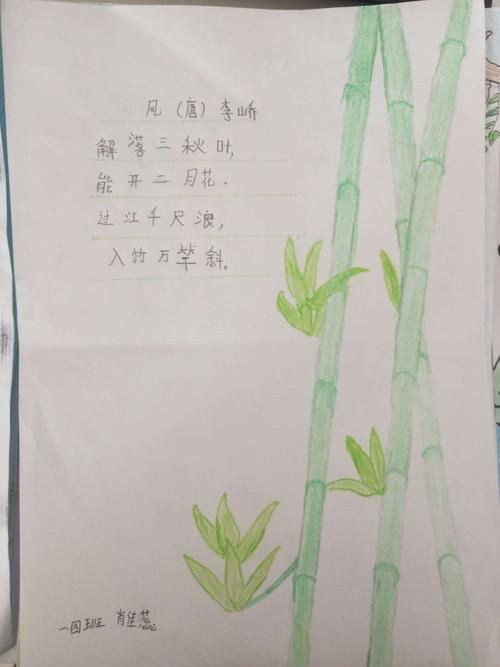 风 (唐) 李峤
解落三秋叶,
能开二月花.
过江千尺浪,
入竹万竿斜。
一四班 肖佳蕊